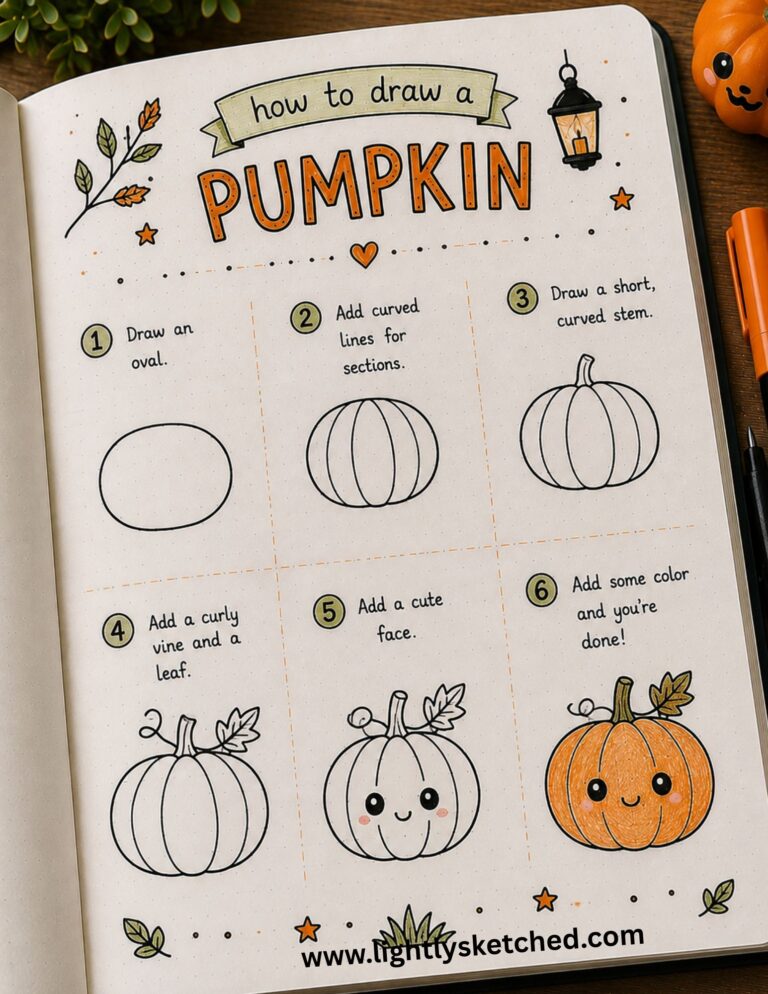 how to draw a
PUMPKIN
1 Draw an
oval.
2 Add curved
lines for
sections.
3 Draw a short,
curved stem.
4 Add a curly
vine and a
leaf.
5 Add a cute
face.
6 Add some color
and you're
done!
www.lightlysketched.com